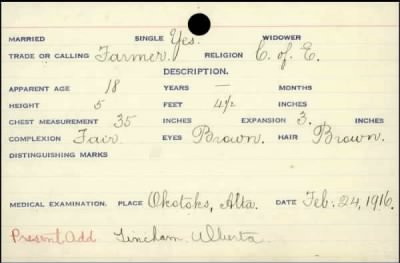 MARRIED SINGLE Yes. WIDOWER
TRADE OR CALLING Farmer. RELIGION C. of E.
DESCRIPTION.
APPARENT AGE 18 YEARS — MONTHS
HEIGHT 5 FEET 4½ INCHES
CHEST MEASUREMENT 35 INCHES EXPANSION 3. INCHES
COMPLEXION Fair EYES Brown. HAIR Brown.
DISTINGUISHING MARKS
MEDICAL EXAMINATION. PLACE Okotoks, Alta. DATE Feb. 24, 1916.
Present Add Lineham Alberta.